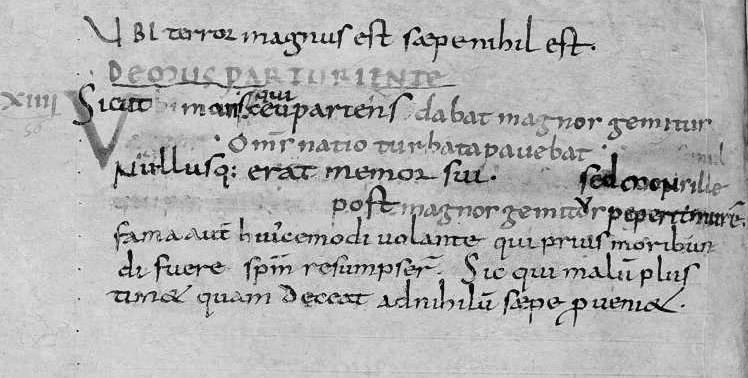 UBI terror magnus est sæpe nihil est.
DE MUS PARTURIENTE
XIIII Sicut mons qui ceu partens dabat magnos gemitus
Omis natio turbata pavebat.
Nullusq: erat memor sui. sed mons ille
post magnos gemitus peperit murē.
fama aut̄ huicemodi volante qui prius moribun
di fuere spm̄ resumpser̄. Sic qui malū plus
tim& quam deceat ad nihilū sæpe pveni&.